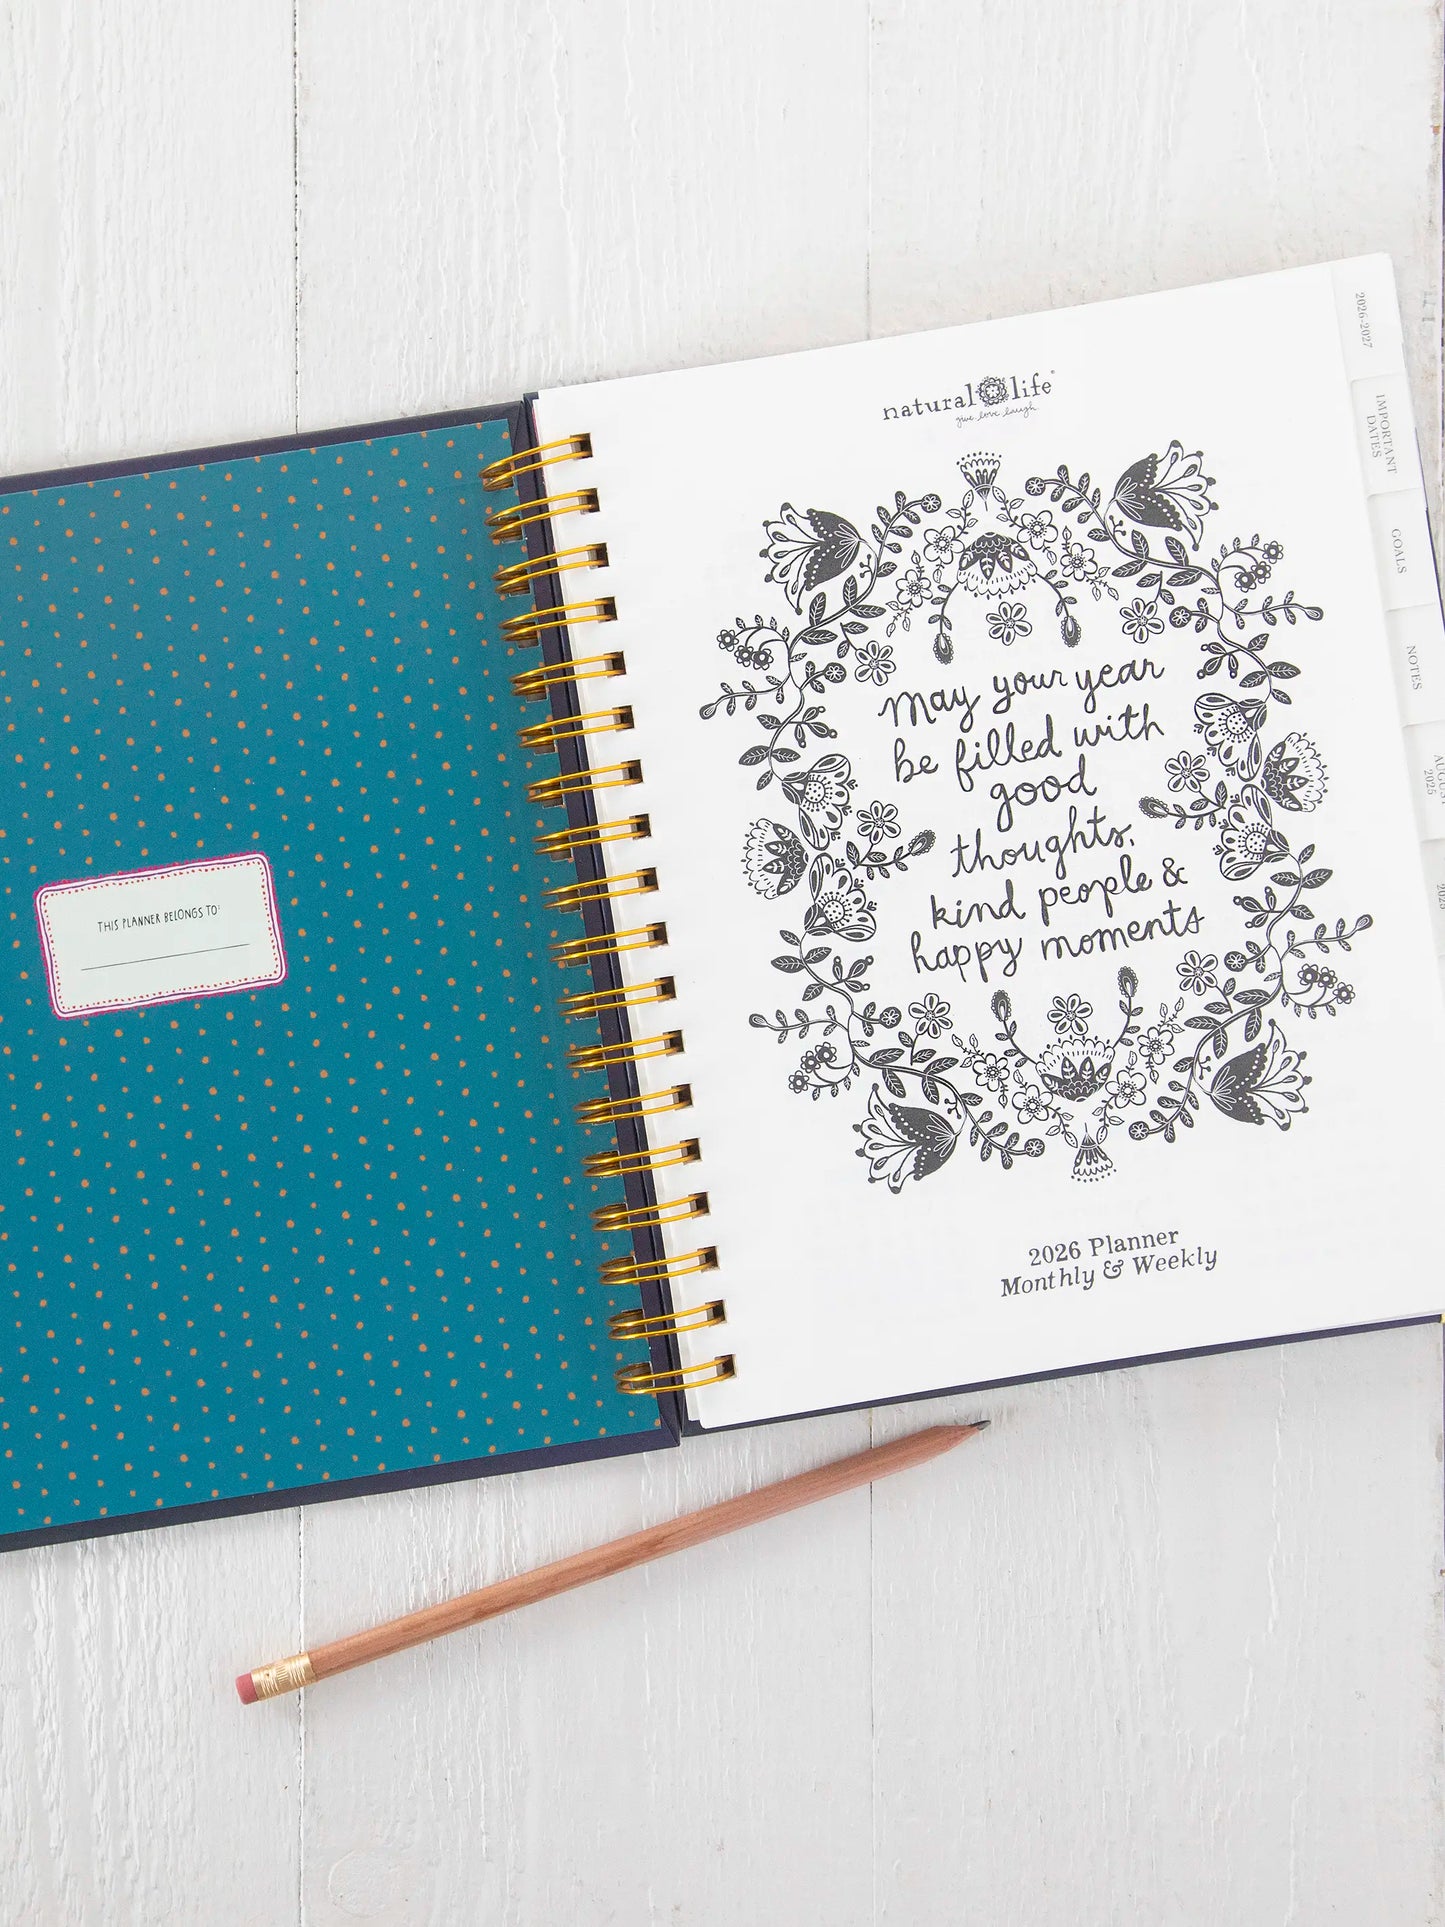 THIS PLANNER BELONGS TO:
natural life®
give. love. laugh.
May your year
be filled with
good
thoughts,
kind people &
happy moments
2026 Planner
Monthly & Weekly
2026-2027
IMPORTANT
DATES
GOALS
NOTES
AUGUST
2025
2025